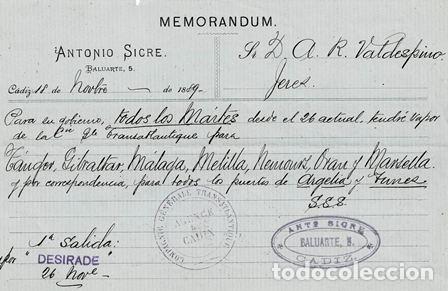 MEMORANDUM.
ANTONIO SICRE.
BALUARTE, 5.
Sr D. A. R. Valdespino
Jerez
Cádiz 18 de Novbre de 1889.
Para su gobierno, todos los Mártes desde el 26 actual, tendré vapor
de la Cie Gle Transatlantique para
Tánger, Gibraltar, Malaga, Melilla, Nemours, Oran y Marsella
y por correspondencia, para todos los puertos de Argelia y Tunez
S.S.S.
1ª Salida:
vapor "DESIRADE"
26 Nove
COMPAGNIE GÉNÉRALE TRANSATLANTIQUE
AGENCE
CADIX
ANTº SICRE
BALUARTE, 5.
CADIZ.
todocoleccion.net